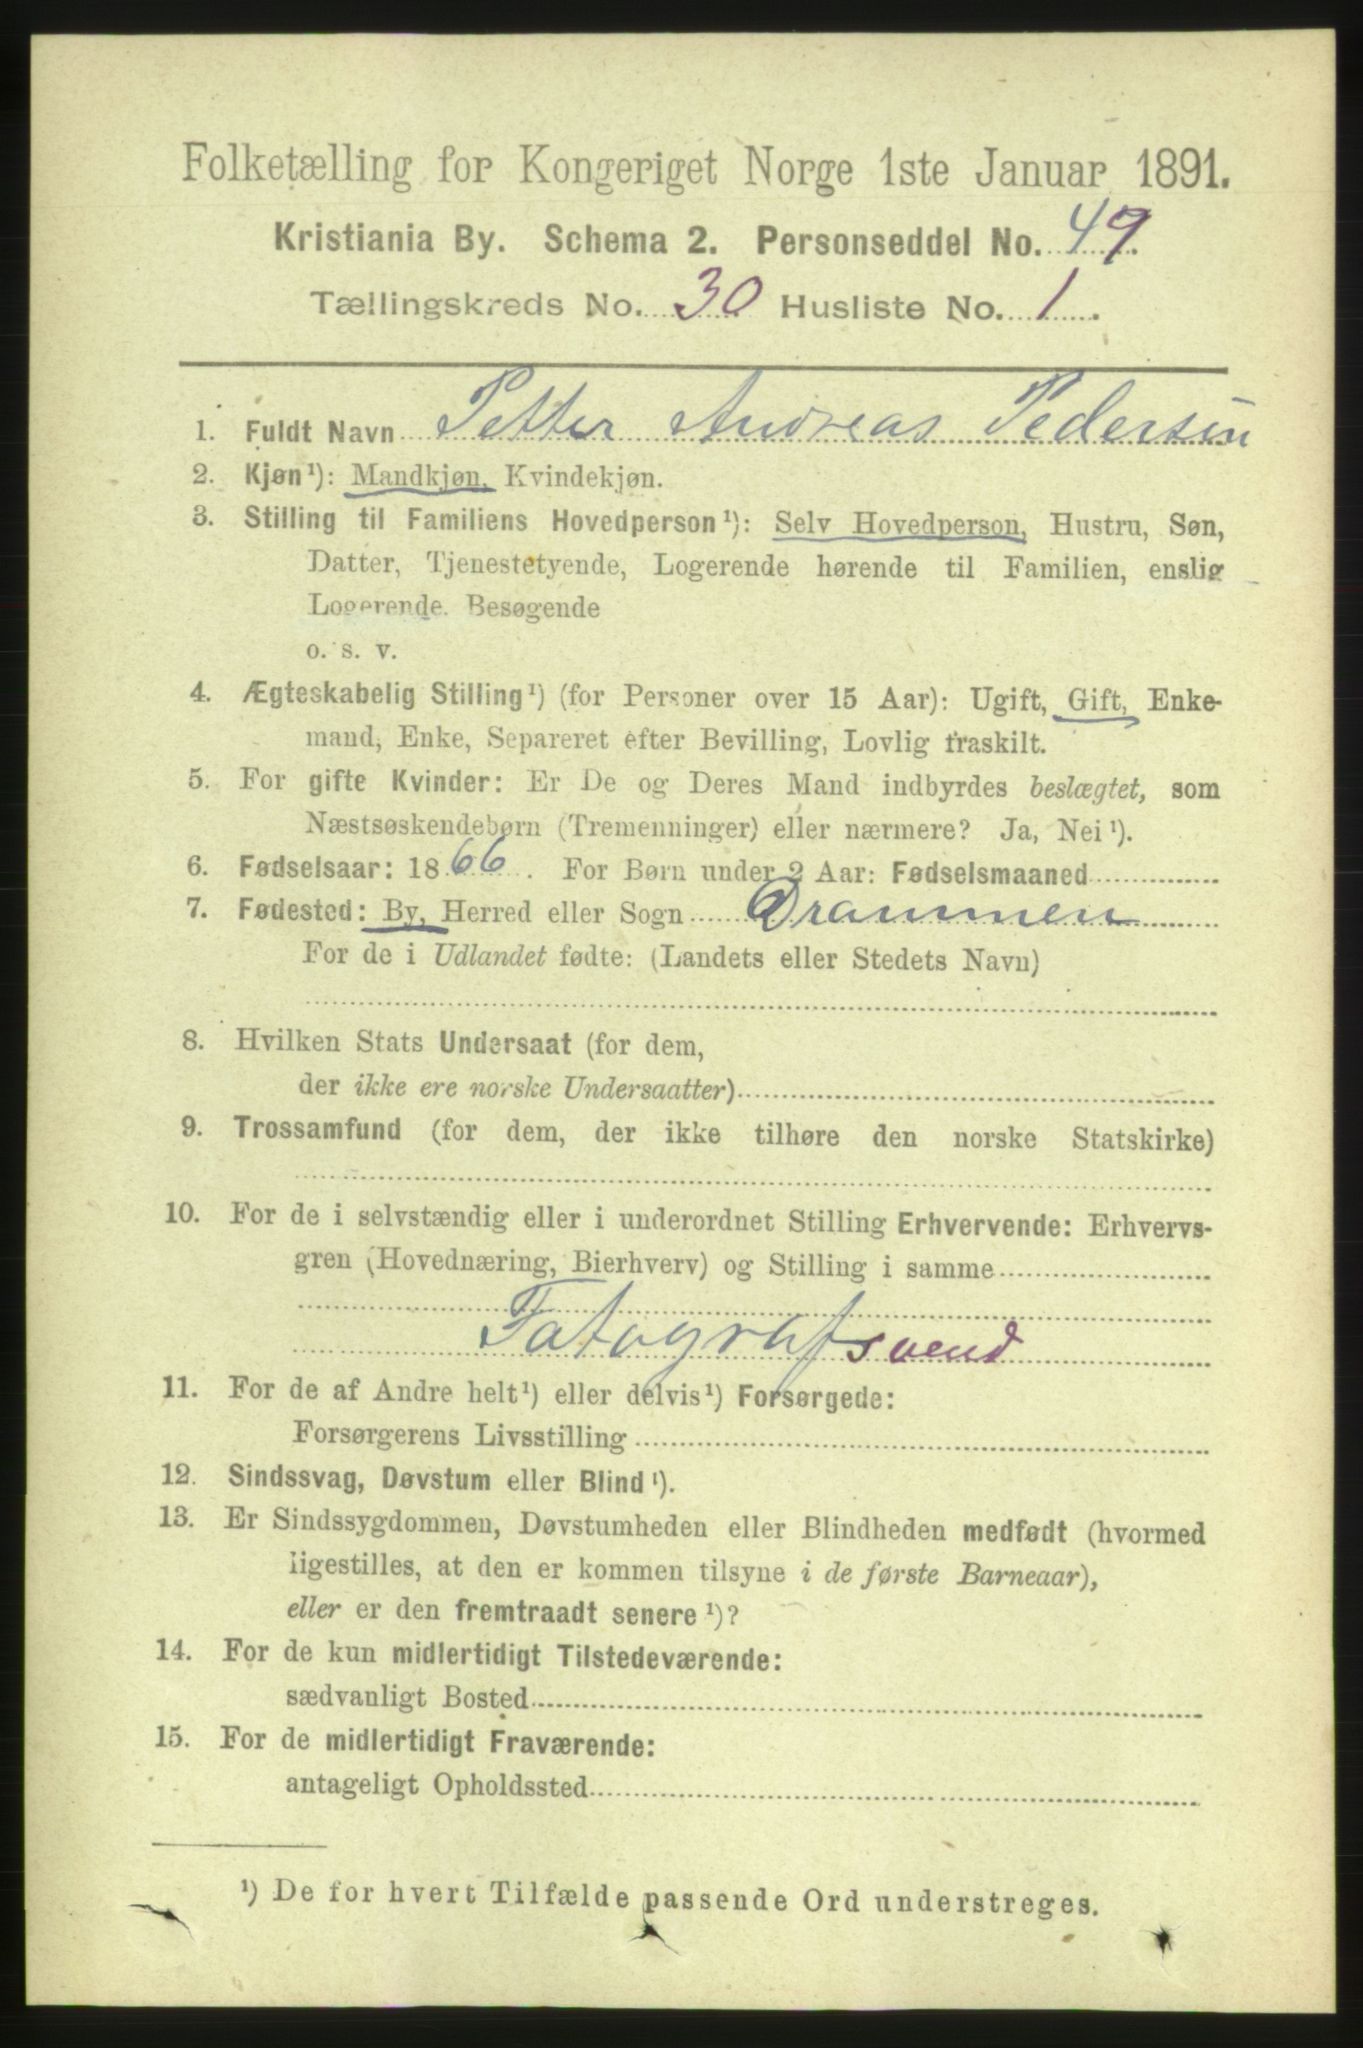 Folketælling for Kongeriget Norge 1ste Januar 1891.
Kristiania By. Schema 2. Personseddel No. 49.
Tællingskreds No. 30 Husliste No. 1.
1. Fuldt Navn Petter Andreas Pedersen
2. Kjøn¹): Mandkjøn, Kvindekjøn.
3. Stilling til Familiens Hovedperson¹): Selv Hovedperson, Hustru, Søn,
Datter, Tjenestetyende, Logerende hørende til Familien, enslig
Logerende, Besøgende
o. s. v.
4. Ægteskabelig Stilling¹) (for Personer over 15 Aar): Ugift, Gift, Enke-
mand, Enke, Separeret efter Bevilling, Lovlig fraskilt.
5. For gifte Kvinder: Er De og Deres Mand indbyrdes beslægtet, som
Næstsøskendebørn (Tremenninger) eller nærmere? Ja, Nei¹).
6. Fødselsaar: 1866. For Børn under 2 Aar: Fødselsmaaned
7. Fødested: By, Herred eller Sogn Drammen
For de i Udlandet fødte: (Landets eller Stedets Navn)
8. Hvilken Stats Undersaat (for dem,
der ikke ere norske Undersaatter)
9. Trossamfund (for dem, der ikke tilhøre den norske Statskirke)
10. For de i selvstændig eller i underordnet Stilling Erhvervende: Erhvervs-
gren (Hovednæring, Bierhverv) og Stilling i samme
Fatografsvend
11. For de af Andre helt¹) eller delvis¹) Forsørgede:
Forsørgerens Livsstilling
12. Sindssvag, Døvstum eller Blind¹).
13. Er Sindssygdommen, Døvstumheden eller Blindheden medfødt (hvormed
ligestilles, at den er kommen tilsyne i de første Barneaar),
eller er den fremtraadt senere¹)?
14. For de kun midlertidigt Tilstedeværende:
sædvanligt Bosted
15. For de midlertidigt Fraværende:
antageligt Opholdssted
¹) De for hvert Tilfælde passende Ord understreges.